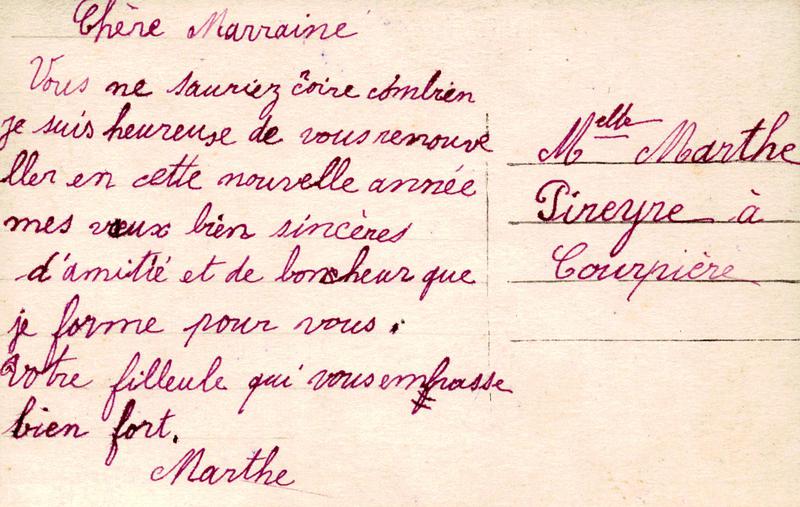 Chère Marraine
Vous ne sauriez coire combien
je suis heureuse de vous renouve
ller en cette nouvelle année
mes vœux bien sincères
d'amitié et de bonheur que
je forme pour vous.
Votre filleule qui vous embrasse
bien fort.
Marthe
Melle Marthe
Pireyre à
Courpière